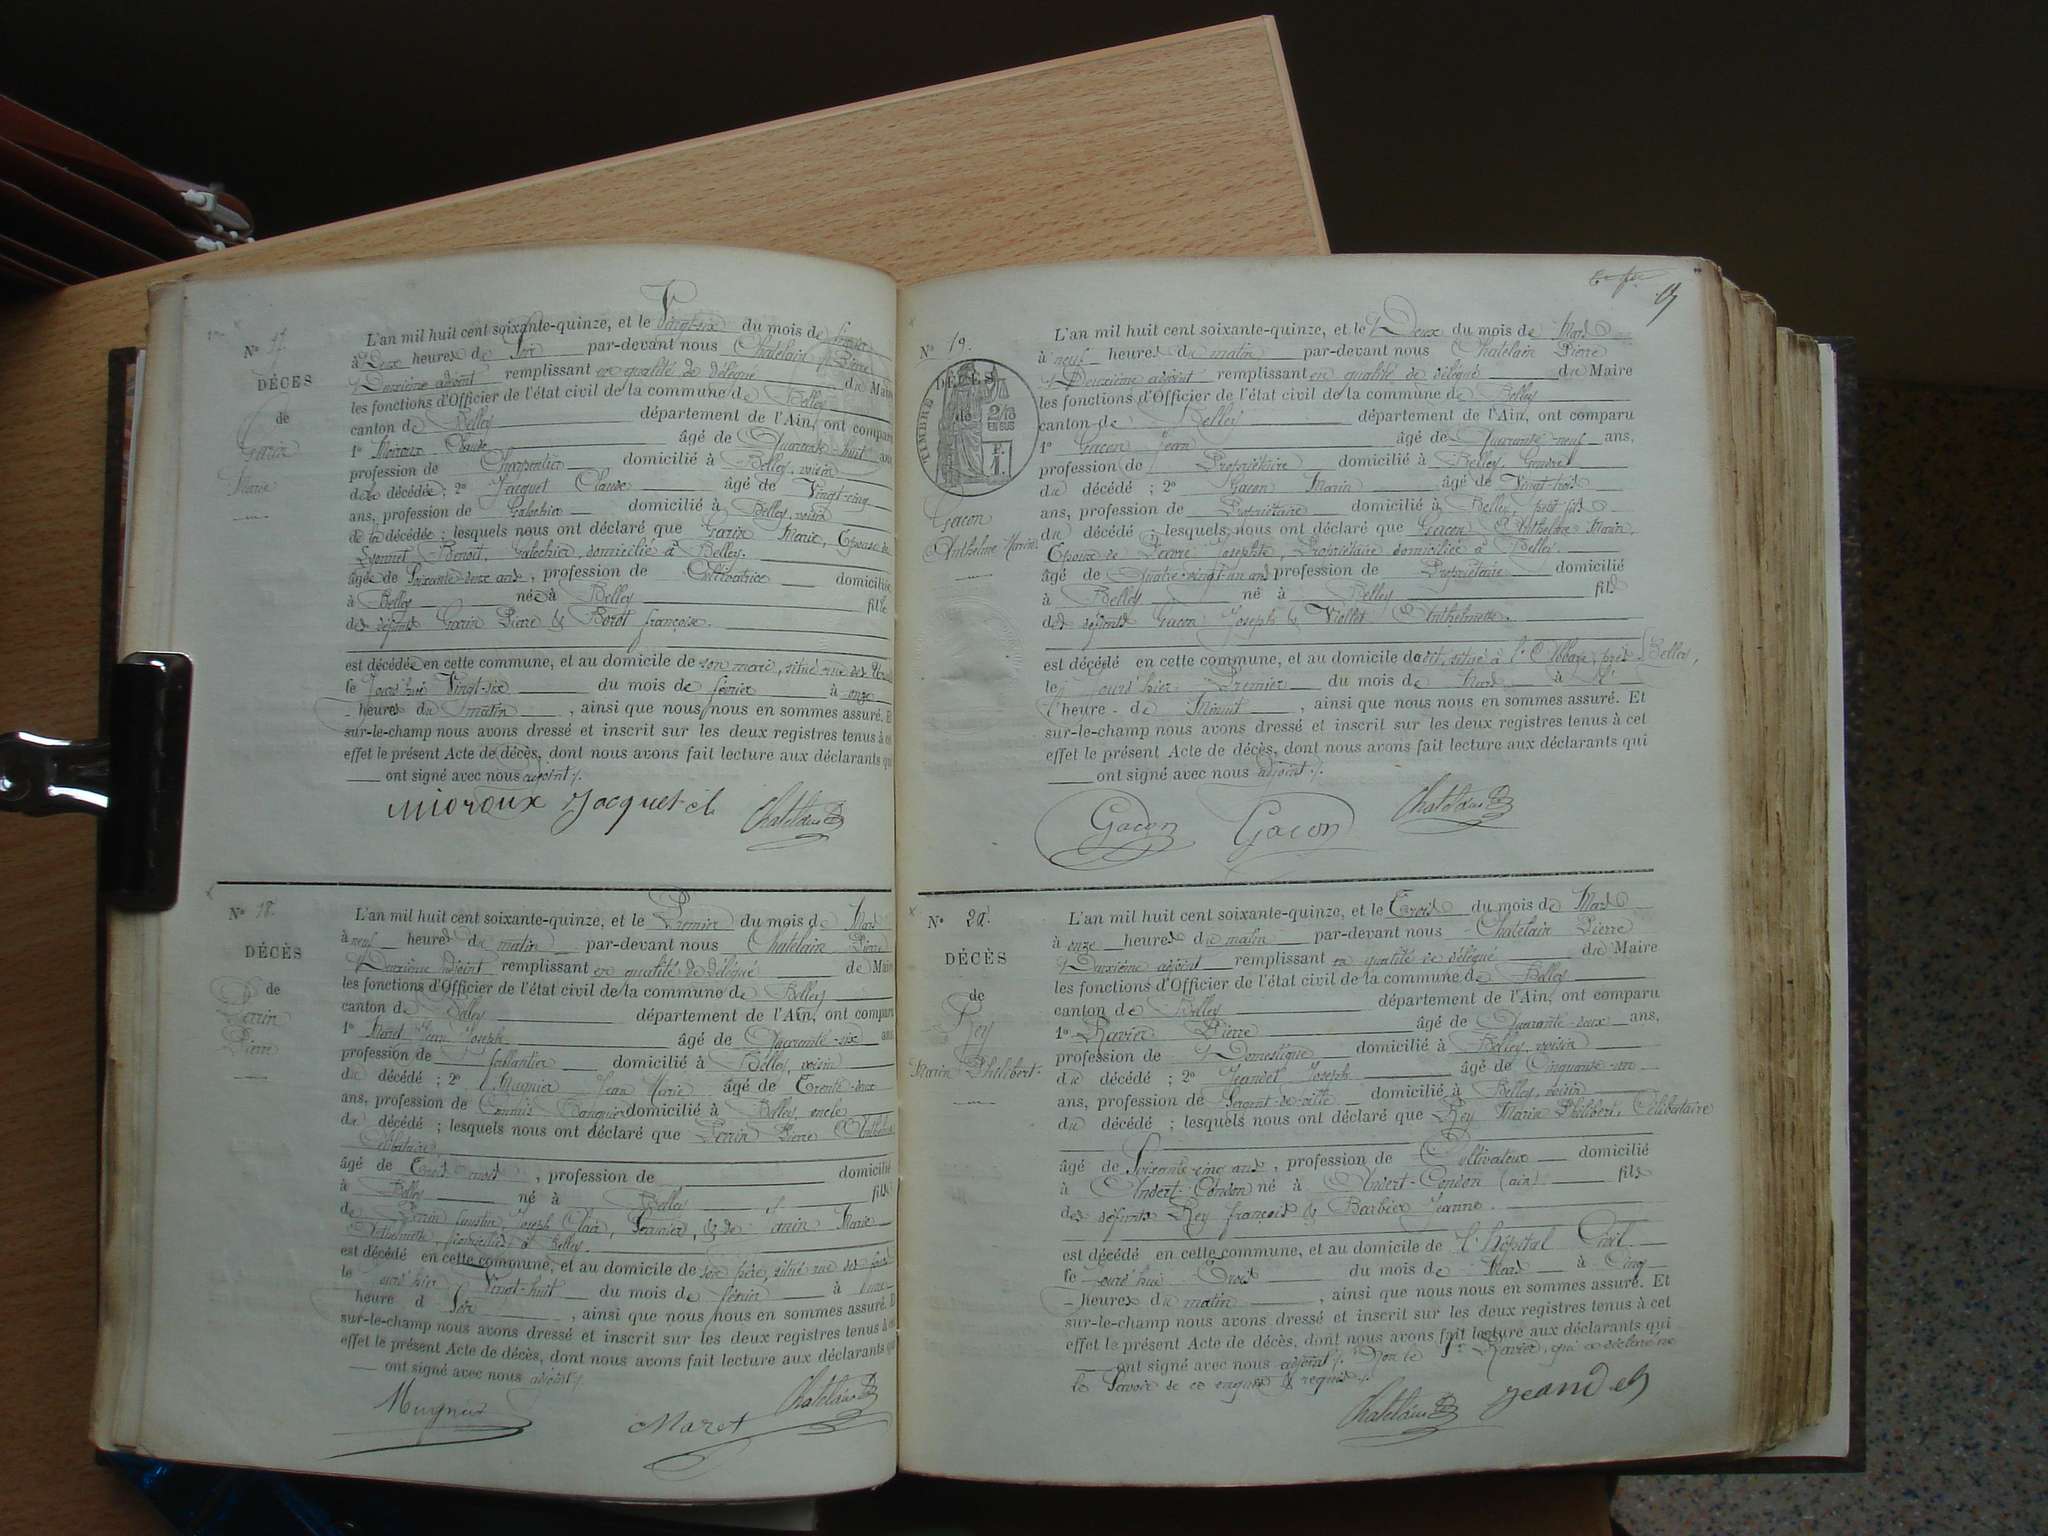 N° 17.
DÉCES
de
Garin
Marie
L'an mil huit cent soixante-quinze, et le Vingt-six du mois de février
à Deux heures de Soir par-devant nous Chatelain Pierre
Deuxième adjoint remplissant en qualité de délégué du Maire
les fonctions d'Officier de l'état civil de la commune de Belley
canton de Belley département de l'Ain, ont comparu
1° Mioroux Claude âgé de Quarante-huit ans
profession de Charpentier domicilié à Belley, voisin
de la décédée ; 2° Jacquet Claude âgé de Vingt-cinq
ans, profession de Galochier domicilié à Belley, voisin
de la décédée ; lesquels nous ont déclaré que Garin Marie, Epouse de
Lyonnet Benoit, Galochier, domicilié à Belley.
âgée de Soixante-deux ans, profession de Cultivatrice domiciliée
à Belley née à Belley fille
des défunts Garin Pierre & Borot françoise.
est décédée en cette commune, et au domicile de son mari, situé rue des
le jourd'hui Vingt-six du mois de février à onze
heures du matin, ainsi que nous nous en sommes assuré. Et
sur-le-champ nous avons dressé et inscrit sur les deux registres tenus à cet
effet le présent Acte de décès, dont nous avons fait lecture aux déclarants qui
ont signé avec nous adjoint.
Mioroux Jacquet cl Chatelain
N° 18.
DÉCÈS
de
Perrin
Pierre
L'an mil huit cent soixante-quinze, et le Premier du mois de Mars
à neuf heures du matin par-devant nous Chatelain Pierre
Deuxième adjoint remplissant en qualité de délégué de Maire
les fonctions d'Officier de l'état civil de la commune de Belley
canton de Belley département de l'Ain, ont comparu
1° Maret Jean Joseph âgé de Quarante-six ans
profession de ferblantier domicilié à Belley, voisin
du décédé ; 2° Mugnier Jean Marie âgé de Trente-deux
ans, profession de Commis Banquier domicilié à Belley, oncle
du décédé ; lesquels nous ont déclaré que Perrin Pierre Anthelme
Célibataire,
âgé de Trois mois, profession de domicilié
à Belley né à Belley fils
de Perrin faustin, Joseph Clair, & de Marie
Anthelmette, domiciliés à Belley.
est décédé en cette commune, et au domicile de son père, situé rue des
le jourd'hier Vingt-huit du mois de février à une
heure d Soir, ainsi que nous nous en sommes assuré. Et
sur-le-champ nous avons dressé et inscrit sur les deux registres tenus à cet
effet le présent Acte de décès, dont nous avons fait lecture aux déclarants qui
ont signé avec nous adjoint
Mugnier Maret Chatelain
N° 19.
DÉCÈS
de
TIMBRE
2/10
EN SUS
F.
1.
Gacon
Anthelme Marin
L'an mil huit cent soixante-quinze, et le Deux du mois de Mars
à neuf heures du matin par-devant nous Chatelain Pierre
Deuxième adjoint remplissant en qualité de délégué du Maire
les fonctions d'Officier de l'état civil de la commune de Belley
canton de Belley département de l'Ain, ont comparu
1° Gacon Jean âgé de Quarante-neuf ans,
profession de Propriétaire domicilié à Belley, Gendre
du décédé ; 2° Gacon Marin âgé de Vingt-trois
ans, profession de Propriétaire domicilié à Belley, petit-fils
du décédé ; lesquels nous ont déclaré que Gacon Anthelme Marin,
Epoux de Josephte, Propriétaire domiciliée à Belley.
âgé de Quatre-vingt-un ans profession de Propriétaire domicilié
à Belley né à Belley fils
des défunts Gacon Joseph & Viollet Anthelmette.
est décédé en cette commune, et au domicile du dit, situé à l'Abbaye, près Belley,
le jourd'hier Premier du mois de Mars à
l'heure de Minuit, ainsi que nous nous en sommes assuré. Et
sur-le-champ nous avons dressé et inscrit sur les deux registres tenus à cet
effet le présent Acte de décès, dont nous avons fait lecture aux déclarants qui
ont signé avec nous adjoint.
Gacon Gacon Chatelain
N° 20.
DÉCÈS
de
Rey
Marin Philibert
L'an mil huit cent soixante-quinze, et le Trois du mois de Mars
à onze heures du matin par-devant nous Chatelain Pierre
Deuxième adjoint remplissant en qualité de délégué du Maire
les fonctions d'Officier de l'état civil de la commune de Belley
canton de Belley département de l'Ain, ont comparu
1° Ravier Pierre âgé de Quarante-deux ans,
profession de Domestique domicilié à Belley, voisin
du décédé ; 2° Jeandet Joseph âgé de Cinquante-un
ans, profession de Sergent-de-ville domicilié à Belley, voisin
du décédé ; lesquels nous ont déclaré que Rey Marin Philibert, Célibataire
âgé de Soixante-cinq ans, profession de Cultivateur domicilié
à Andert-Condon né à Andert-Condon (ain) fils
des défunts Rey françois & Barbier Jeanne.
est décédé en cette commune, et au domicile de l'hôpital Civil
le jourd'hui Trois du mois de Mars à Cinq
heures du matin, ainsi que nous nous en sommes assuré. Et
sur-le-champ nous avons dressé et inscrit sur les deux registres tenus à cet
effet le présent Acte de décès, dont nous avons fait lecture aux déclarants qui
ont signé avec nous adjoint. Non le Sr Ravier, qui a déclaré ne
le Savoir de ce enquis & requis.
Chatelain Jeandet